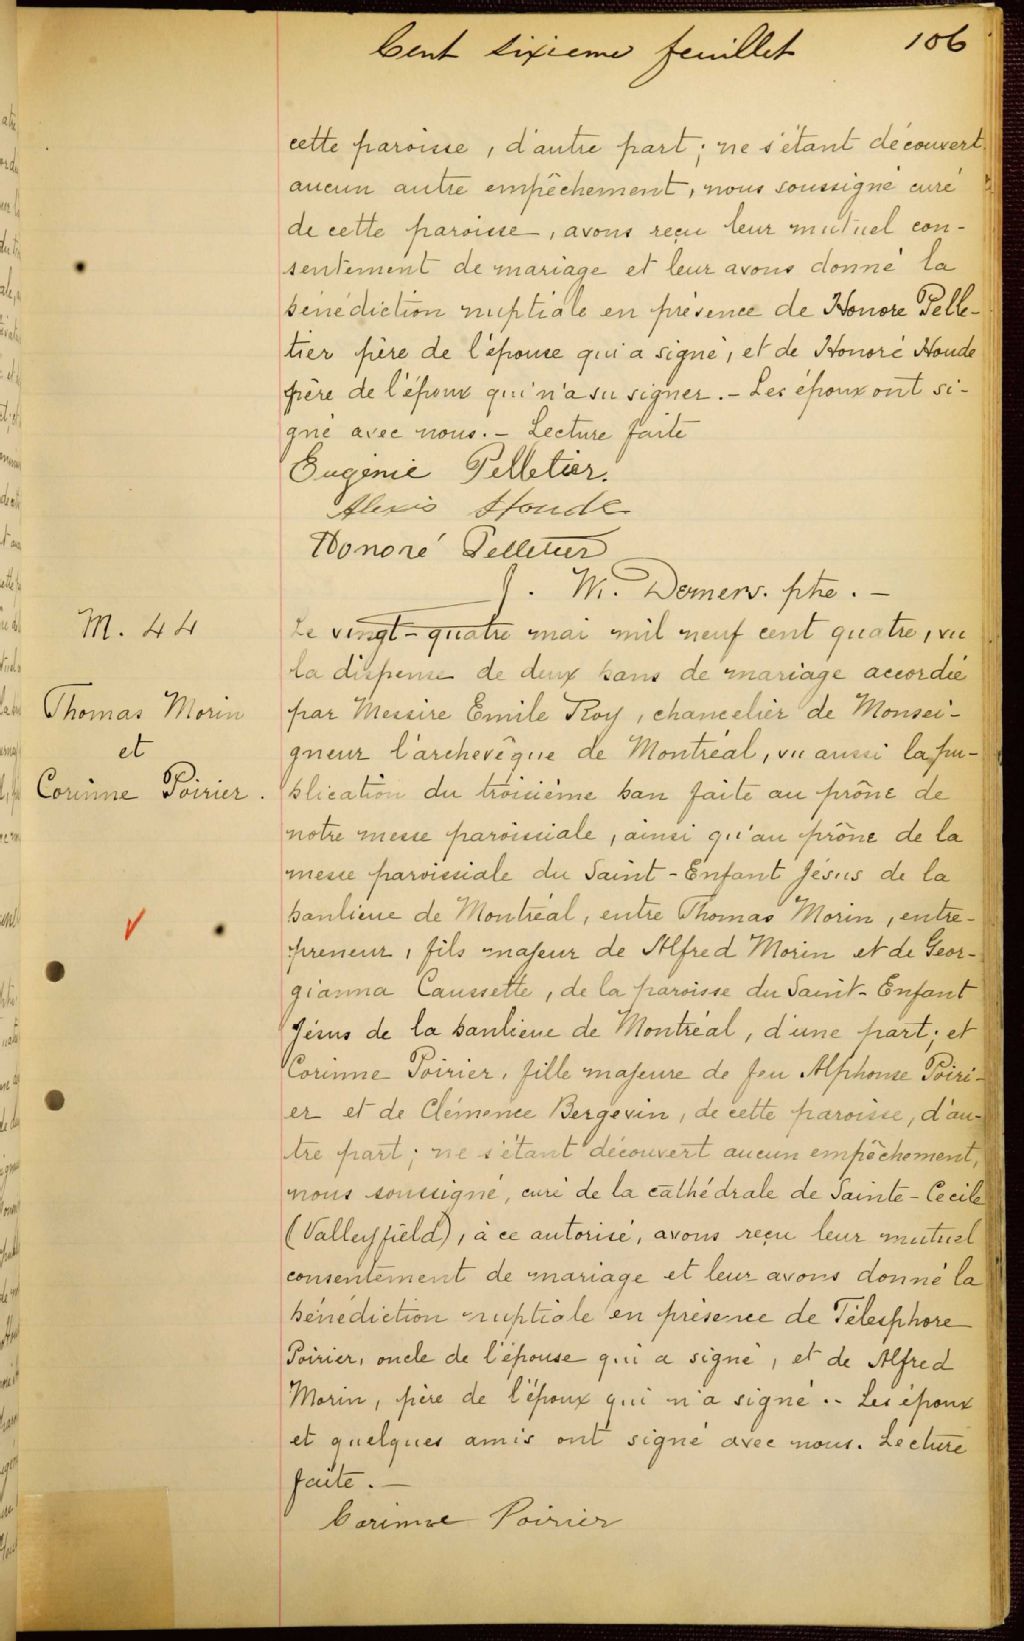 Cent sixieme feuillet 106
cette paroisse, d'autre part; ne s'étant découvert
aucun autre empêchement, nous soussigné curé
de cette paroisse, avons reçu leur mutuel con-
sentement de mariage et leur avons donné la
bénédiction nuptiale en présence de Honore Pelle-
tier père de l'épouse qui a signé, et de Honoré Houde
père de l'époux qui n'a su signer. - Les époux ont si-
gné avec nous. - Lecture faite
Eugénie Pelletier.
Alexis Houde
Honoré Pelletier
J. W. Demers. ptre. -
M. 44
Thomas Morin
et
Corinne Poirier.
Le vingt-quatre mai mil neuf cent quatre, vu
la dispense de deux bans de mariage accordée
par Messire Emile Roy, chancelier de Monsei-
gneur l'archevêque de Montréal, vu aussi la pu-
blication du troisième ban faite au prône de
notre messe paroissiale, ainsi qu'au prône de la
messe paroissiale du Saint-Enfant Jésus de la
banlieue de Montréal, entre Thomas Morin, entre-
preneur, fils majeur de Alfred Morin et de Geor-
gianna Caussette, de la paroisse du Saint-Enfant
Jésus de la banlieue de Montréal, d'une part; et
Corinne Poirier, fille majeure de feu Alphonse Poiri-
er et de Clémence Bergevin, de cette paroisse, d'au-
tre part; ne s'étant découvert aucun empêchement,
nous soussigné, curé de la cathédrale de Sainte-Cecile
(Valleyfield), à ce autorisé, avons reçu leur mutuel
consentement de mariage et leur avons donné la
bénédiction nuptiale en présence de Télesphore
Poirier, oncle de l'épouse qui a signé, et de Alfred
Morin, père de l'époux qui n'a signé. - Les époux
et quelques amis ont signé avec nous. Lecture
faite. -
Corinne Poirier